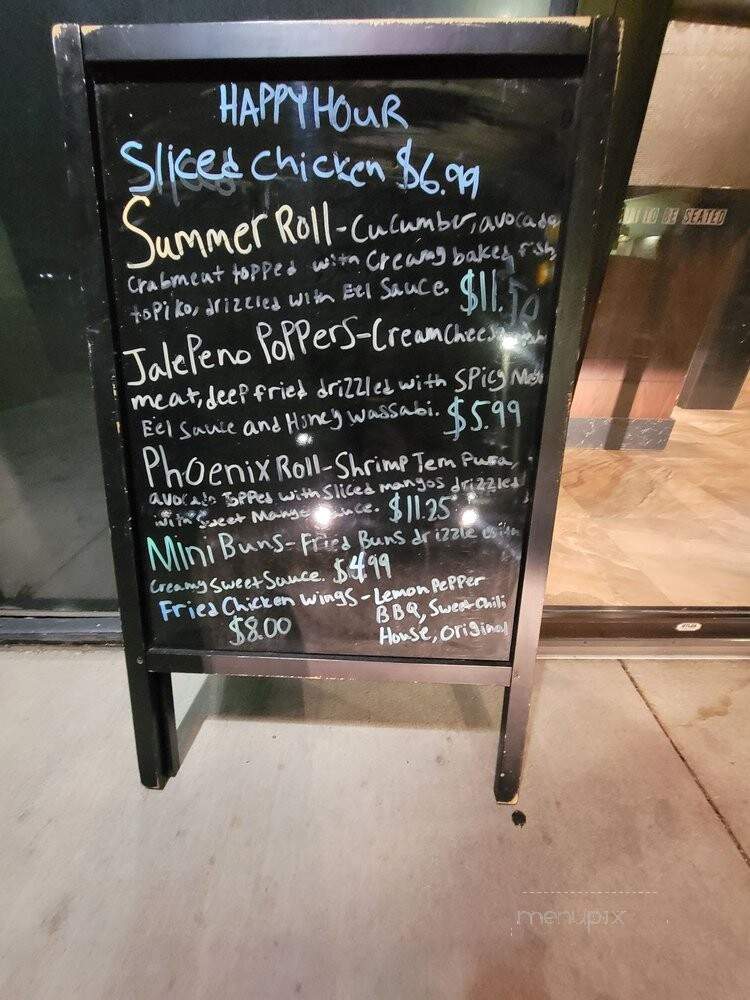 HAPPY HOUR
Sliced Chicken $6.99
Summer Roll-Cucumber, avocado
Crabmeat topped with Creamy baked fish
topiko, drizzled with Eel Sauce. $11.50
Jalepeno Poppers-Cream Cheese,
meat, deep fried drizzled with Spicy
Eel Sauce and Honey wassabi. $5.99
Phoenix Roll-Shrimp Tempura,
avocado Topped with Sliced mangos drizzled
with Sweet Mango Sauce. $11.25
Mini Buns-Fried Buns drizzle with
Creamy Sweet Sauce. $4.99
Fried Chicken Wings-Lemon Pepper
BBQ, Sweet Chili
$8.00 House, Original
TO BE SEATED
menupix